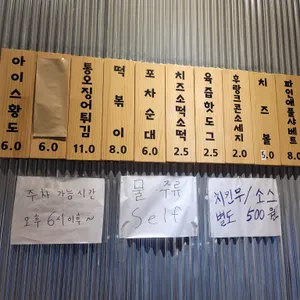 아이스황도
6.0
6.0
통오징어튀김
11.0
떡볶이
8.0
포차순대
6.0
치즈소떡소떡
2.5
육즙핫도그
2.5
후랑크콘소세지
2.0
치즈볼
5.0
파인애플샤베트
8.0
주차 가능시간
오후 6시 이후~
물 주류
Self
치킨무/소스
별도 500원